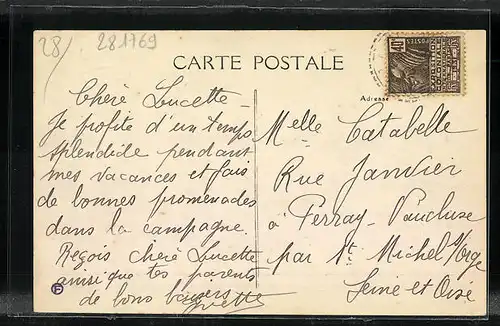 28/
281769
CARTE POSTALE
Chère Lucette -
Je profite d'un temps
splendide pendant
mes vacances et fais
de bonnes promenades
dans la campagne.
Reçois chère Lucette
ainsi que tes parents
de bons baisers
Yvette
Adresse
Melle Catabelle
Rue Janvier
à Perray-Vaucluse
par St Michel s/orge
Seine et Oise